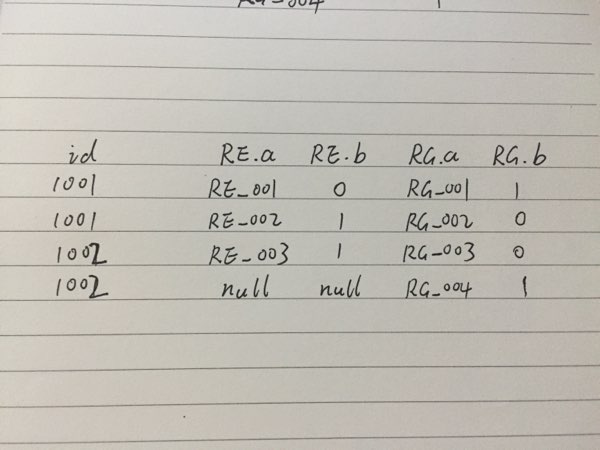 RG_004 1
id RE.a RE.b RG.a RG.b
1001 RE_001 0 RG_001 1
1001 RE_002 1 RG_002 0
1002 RE_003 1 RG_003 0
1002 null null RG_004 1